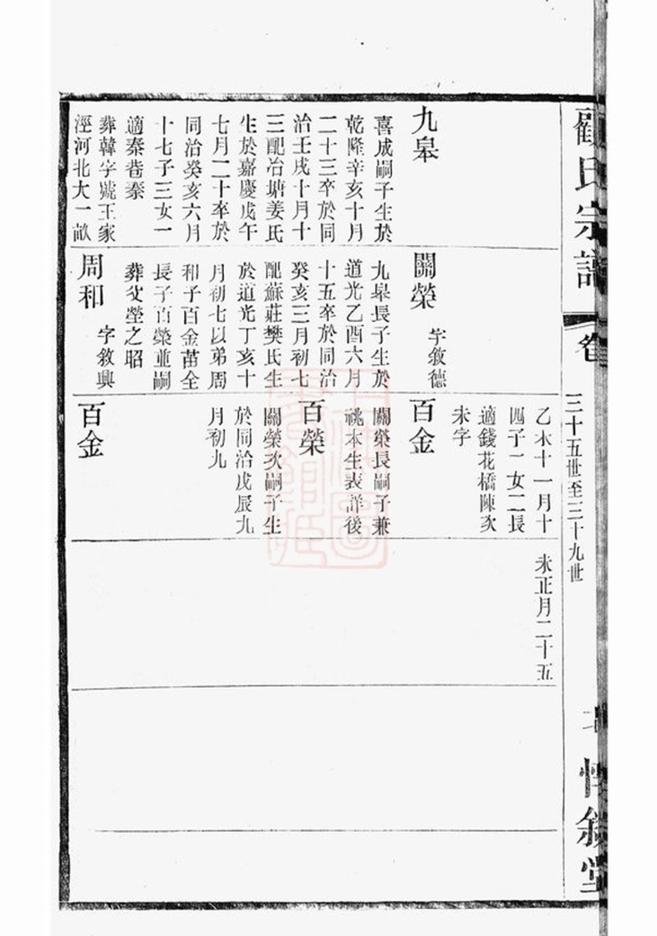 顧氏宗譜
卷
三十五世至三十九世
惇敘堂
九皋
喜成嗣子生於
乾隆辛亥十月
二十三卒於同
治壬戌十月十
三配冶塘姜氏
生於嘉慶戊午
七月二十卒於
同治癸亥六月
十七子三女一
適秦巷秦
葬韓字號王家
涇河北大一畝
關榮 字敘德
九皋長子生於
道光乙酉六月
十五卒於同治
癸亥三月初七
配蘇莊樊氏生
於道光丁亥十
月初七以弟周
和子百金苗全
長子百榮並嗣
葬父塋之昭
周和 字敘興
乙未十一月十
四子一女二長
適錢花橋陳次
未字
百金
關榮長嗣子兼
祧本生表詳後
百榮
關榮次嗣子生
於同治戊辰九
月初九
百金
未正月二十五